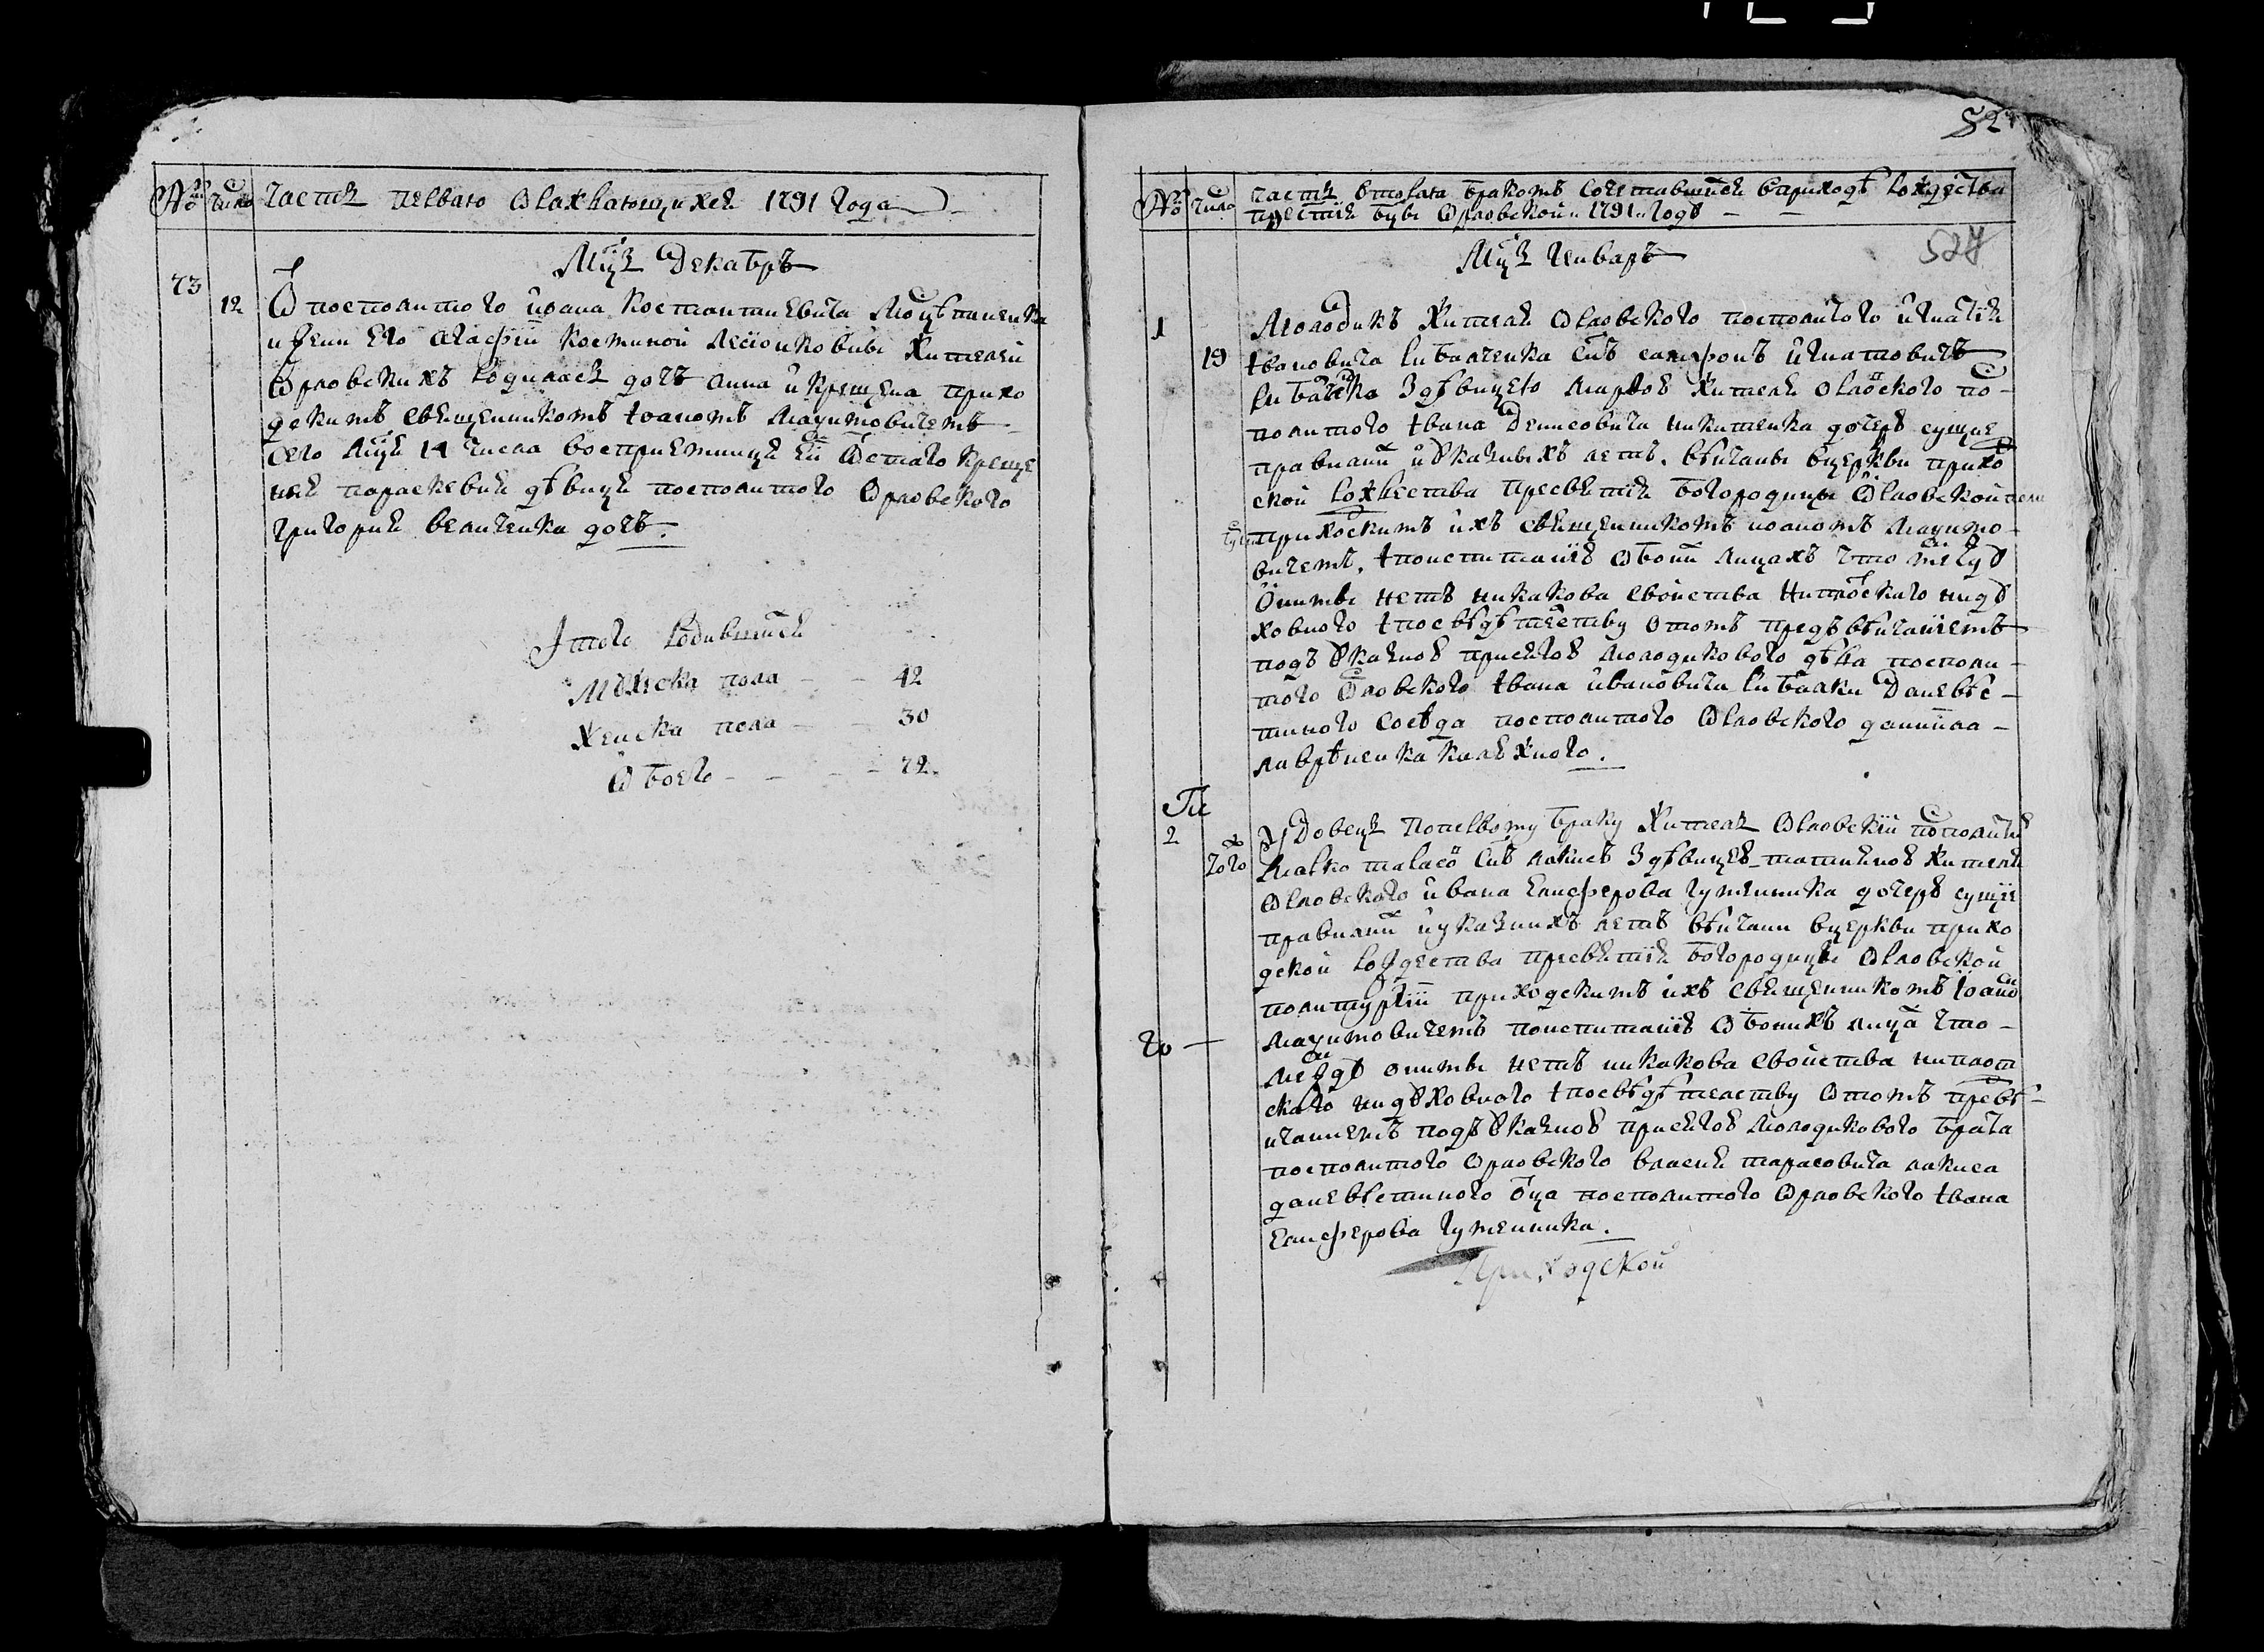 № число Часть первая о раждающихся 1791 года
Мцъ Декабръ
73
12 У посполитого иоана костантиевича
и жени его агафіи жителей
Орловскихъ родилась дочъ анна и крещена прихо
дскимъ священникомъ іоаномъ Мазимовичемъ
сего мця 14 числа восприемниця ей от стаго креще
ния параскевия дѣвица посполитого Орловского
григория величенка дочъ.
Итого родившихся
Мужеска пола - - 42
Женска пола - - 30
Обоего - - - - 72
52
№ число Часть вторая бракомъ сочетавшихся в приходѣ рождества
престія бцы Орловской 1791 годъ
Мцъ Генваръ
527
1
19 Молодикъ житель Орловского посполитого игнатія
івановича сынъ игнатовичъ
з дѣвицею жителя орловского по-
политого івана Денисовича никитенка дочерю сущие
правилнихъ и указныхъ летъ, вѣнчаны в церкви приход
ской рождества пресвятія богородицы Орловской
приходскимъ ихъ священникомъ иоаномъ Мазимо-
вичемъ, по испитаніи обоихъ лицахъ что между
оними нетъ никакова свойства ни плоского ни ду
ховного і по свѣдѣтелству о томъ предъ вѣнчаніемъ
подъ указною присягою молодикового дѣда посполи-
того Орловского івана ивановича Да невѣс-
тиного соседа посполитого Орловского данила
2
Вдовецъ по первому браку житель Орловскій посполитій
Марко тарасов сынъ лакиза з дѣвицею татияною жителя
Орловского ивана елисферова гуменника дочерю сущіе
правилнихъ и указнихъ летъ вѣнчани в церкви прихо
дской рождества пресвятія богородицы Орловской
по литургіи приходскимъ ихъ священникомъ іоаном
Мазимовичемъ по испитаніи обоихъ лицах что -
между оними нетъ никакова свойства ни плот
ского ни духовного і по свѣдѣтелству о томъ пред вѣ-
нчаниемъ подъ указною присягою молодикового брата
посполитого Орловского власия тарасовича лакиса
да невѣстиного отца посполитого Орловского івана
елисферова гуменника.
Приходской